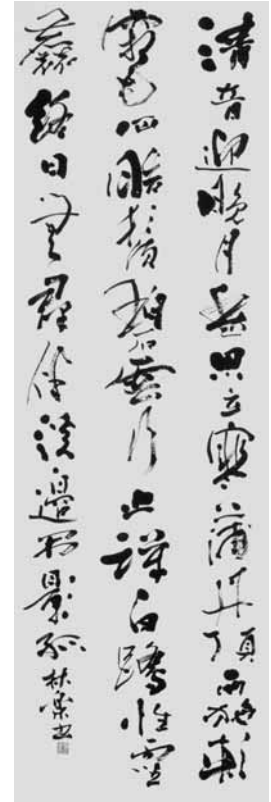 清音迎晚月愁思立寒蒲丹頂西施頰
霜毛四皓鬚碧雲行止躁白鷺性靈
麤終日無群伴溪邊弔影孤